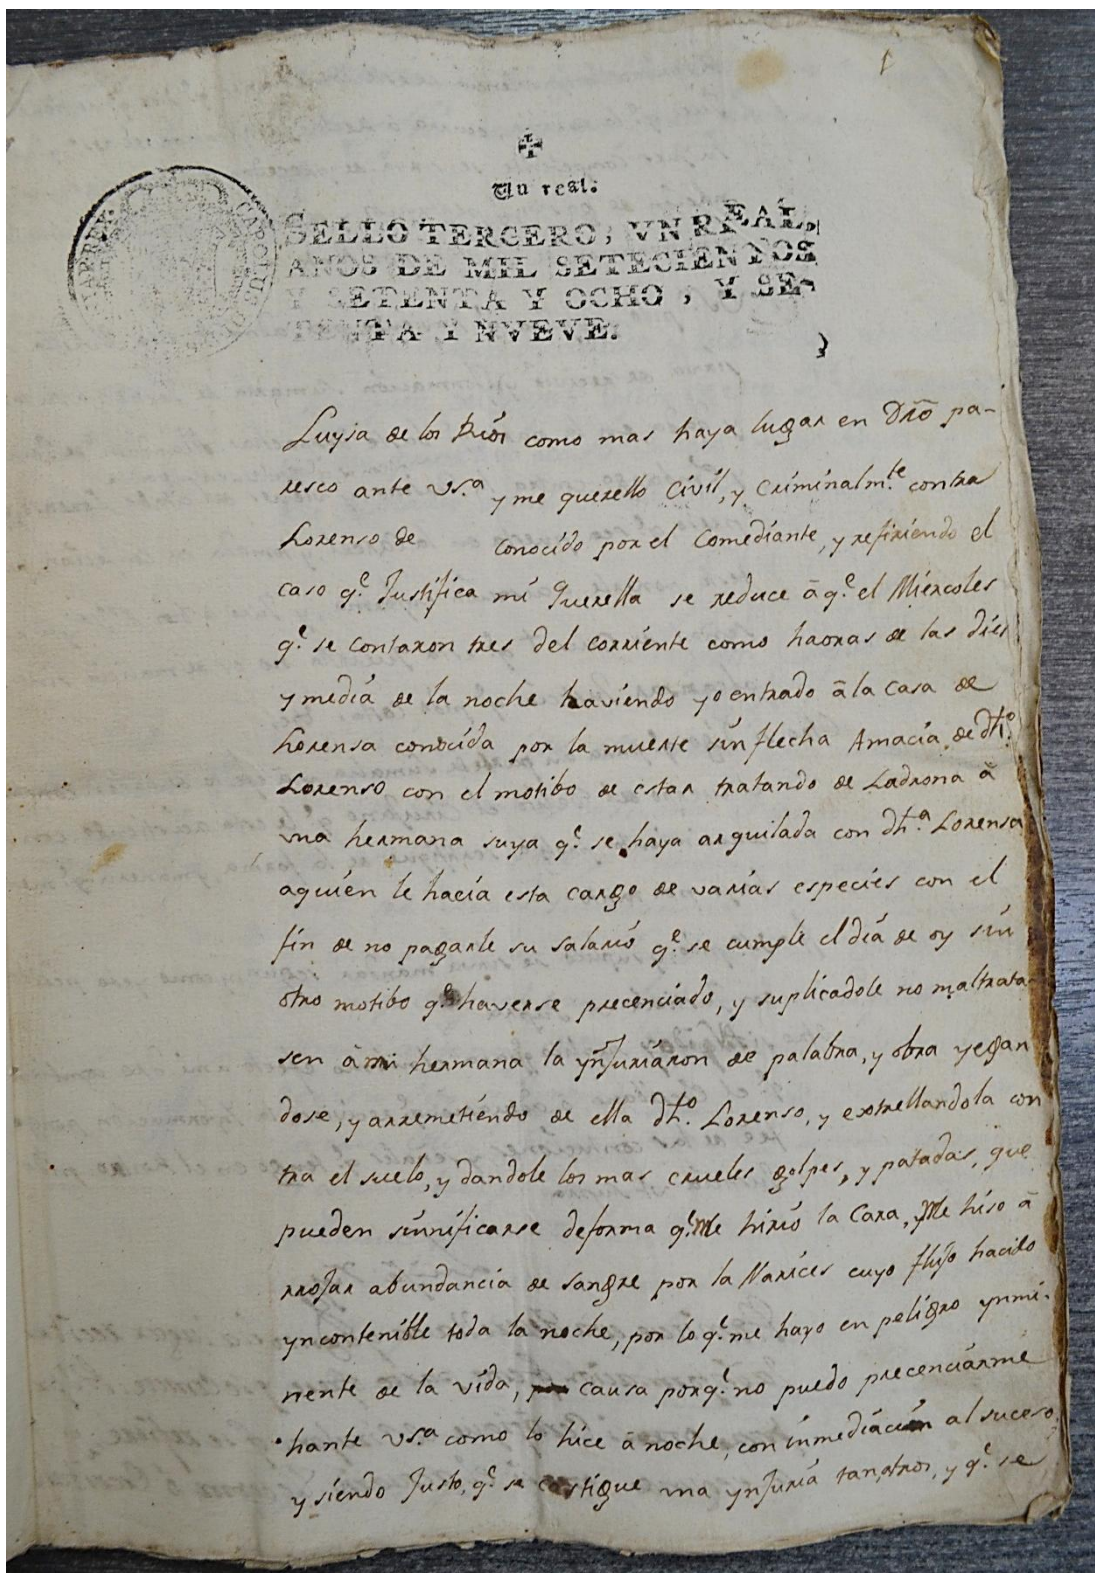 1
Un real.
SELLO TERCERO, VN REAL,
AÑOS DE MIL SETECIENTOS
Y SETENTA Y OCHO, Y SE-
TENTA Y NVEVE.
Luysa de los Rios como mas haya lugar en Dr̃o pa-
resco ante vs.ª y me querello Civil, y Criminalm.te contra
Lorenso de conocido por el Comediante, y refiriendo el
caso q.e Justifica mi Querella se reduce â q.e el Miercoles
q.e se contaron tres del corriente como haoras de las dies
y media de la noche haviendo yo entrado â la Casa de
Lorensa conocida por la muerte sin flecha Amacia de dh.o
Lorenso con el motibo de estar tratando de Ladrona â
una hermana suya q.e se haya arquilada con dh.a Lorensa
aquien le hacia esta cargo de varias especies con el
fin de no pagarle su salario q.e se cumple el dia de oy sin
otro motibo q.e haverse precenciado, y suplicadole no maltrata-
sen â mi hermana la ynJuriaron de palabra, y obra yegan
dose, y arremetiendo de ella dh.o Lorenso, y extrellandola con
tra el suelo, y dandole los mas crueles golpes, y patadas, que
pueden sinnificarse deforma q.e Me hirió la Cara, Me hiso â
rroJar abundancia de sangre por la Narices cuyo flujo hacido
yncontenible toda la noche, por lo q.e me hayo en peligro ynmi-
nente de la vida, causa porq.e no puedo precenciarme
hante vs.ª como lo hice â noche, con inmediación al suceso
y siendo Justo, q.e se castigue una ynJuria tan atros, y q.e se